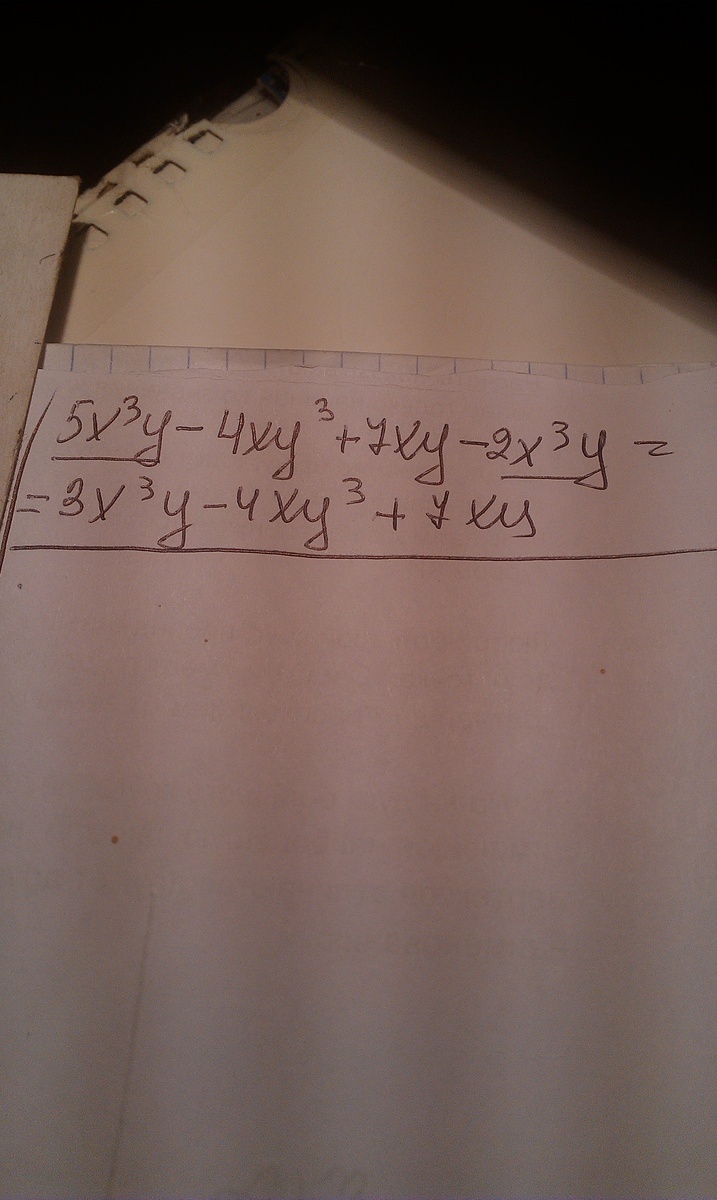 5x³y - 4xy³ + 7xy - 2x³y =
= 3x³y - 4xy³ + 7xy